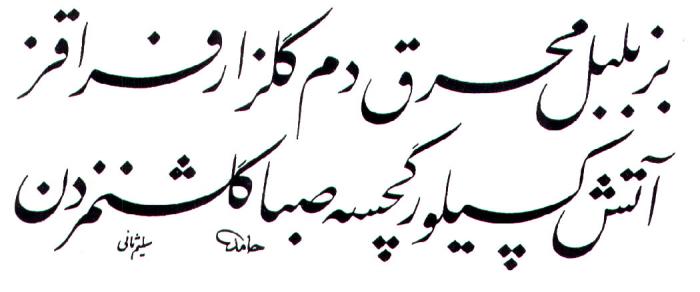 بز بلبل محرق دم گلزار فراقز
آتش کسیلور گچسه صبا گلشنمزدن
حامد سلیم ثانی